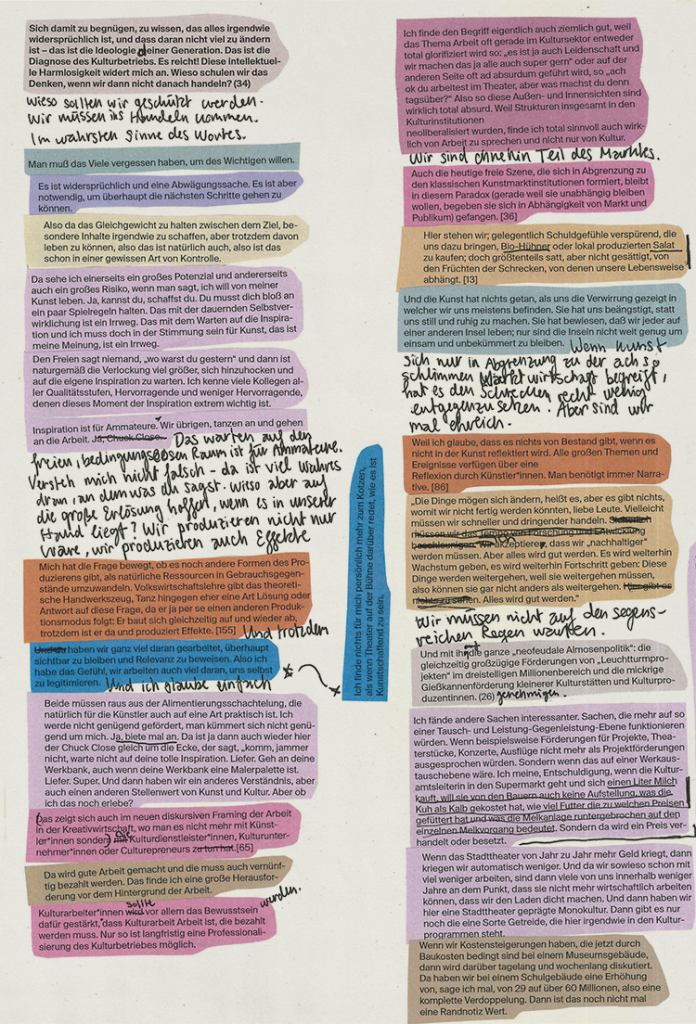 Sich damit zu begnügen, zu wissen, das alles irgendwie
widersprüchlich ist, und dass daran nicht viel zu ändern
ist – das ist die Ideologie deiner Generation. Das ist die
Diagnose des Kulturbetriebs. Es reicht! Diese intellektuel-
le Harmlosigkeit widert mich an. Wieso schulen wir das
Denken, wenn wir dann nicht danach handeln? (34)
Wieso sollten wir geschützt werden.
Wir müssen ins Handeln kommen.
Im wahrsten Sinne des Wortes.
Man muß das Viele vergessen haben, um des Wichtigen willen.
Es ist widersprüchlich und eine Abwägungssache. Es ist aber
notwendig, um überhaupt die nächsten Schritte gehen zu
können.
Also da das Gleichgewicht zu halten zwischen dem Ziel, be-
sondere Inhalte irgendwie zu schaffen, aber trotzdem davon
leben zu können, also das ist natürlich auch, also ist das
schon in einer gewissen Art von Kontrolle.
Da sehe ich einerseits ein großes Potenzial und andererseits
auch ein großes Risiko, wenn man sagt, ich will von meiner
Kunst leben. Ja, kannst du, schaffst du. Du musst dich bloß an
ein paar Spielregeln halten. Das mit der dauernden Selbstver-
wirklichung ist ein Irrweg. Das mit dem Warten auf die Inspira-
tion und ich muss doch in der Stimmung sein für Kunst, das ist
meine Meinung, ist ein Irrweg.
Den Freien sagt niemand, „wo warst du gestern“ und dann ist
naturgemäß die Verlockung viel größer, sich hinzuhocken und
auf die eigene Inspiration zu warten. Ich kenne viele Kollegen al-
ler Qualitätsstufen, Hervorragende und weniger Hervorragende,
denen dieses Moment der Inspiration extrem wichtig ist.
Inspiration ist für Ammateure. Wir übrigen, tanzen an und gehen
an die Arbeit. Ja, Chuck Close. Das warten auf den
freien, bedingungslosen Raum ist für Ammateure.
Versteh mich nicht falsch – da ist viel wahres
dran, an dem was du sagst. Wieso aber auf
die große Erlösung hoffen, wenn es in unserer
Hand liegt? Wir produzieren nicht nur
Ware, wir produzieren auch Effekte
Mich hat die Frage bewegt, ob es noch andere Formen des Pro-
duzierens gibt, als natürliche Ressourcen in Gebrauchsgegen-
stände umzuwandeln. Volkswirtschaftslehre gibt das theoreti-
sche Handwerkszeug, Tanz hingegen eher eine Art Lösung oder
Antwort auf diese Frage, da er ja per se einen anderen Produk-
tionsmodus folgt: Er baut sich gleichzeitig auf und wieder ab,
trotzdem ist er da und produziert Effekte. [155] Und trotzdem
haben wir ganz viel daran gearbeitet, überhaupt
sichtbar zu bleiben und Relevanz zu beweisen. Also ich
habe das Gefühl, wir arbeiten auch viel daran, uns selbst
zu legitimieren. Und ich glaube einfach
Beide müssen raus aus der Alimentierungsschachtelung, die
natürlich für die Künstler auch auf eine Art praktisch ist. Ich
werde nicht genügend gefördert, man kümmert sich nicht genü-
gend um mich. Ja, biete mal an. Da ist ja dann auch wieder hier
der Chuck Close gleich um die Ecke, der sagt, „komm, jammer
nicht, warte nicht auf deine tolle Inspiration. Liefer. Geh an deine
Werkbank, auch wenn deine Werkbank eine Malerpalette ist.
Liefer. Super. Und dann haben wir ein anderes Verständnis, aber
auch einen anderen Stellenwert von Kunst und Kultur. Aber ob
ich das noch erlebe?
Das zeigt sich auch im neuen diskursiven Framing der Arbeit
in der Kreativwirtschaft, wo man es nicht mehr mit Künst-
ler*innen sondern mit Kulturdienstleister*innen, Kulturunter-
nehmer*innen oder Culturepreneurs zu tun hat. [65]
Da wird gute Arbeit gemacht und die muss auch vernünf-
tig bezahlt werden. Das finde ich eine große Herausfor-
derung vor dem Hintergrund der Arbeit.
Kulturarbeiter*innen wird sollte vor allem das Bewusstsein werden.
dafür gestärkt, dass Kulturarbeit Arbeit ist, die bezahlt
werden muss. Nur so ist langfristig eine Professionali-
sierung des Kulturbetriebes möglich.
Ich finde nichts für mich persönlich mehr zum Kotzen,
als wenn Theater auf der Bühne darüber redet, wie es ist
Kunstschaffend zu sein.
Ich finde den Begriff eigentlich auch ziemlich gut, weil
das Thema Arbeit oft gerade im Kultursektor entweder
total glorifiziert wird so: „es ist ja auch Leidenschaft und
wir machen das ja alle auch super gern“ oder auf der
anderen Seite oft ad absurdum geführt wird, so „ach
ok du arbeitest im Theater, aber was machst du denn
tagsüber?“ Also so diese Außen- und Innensichten sind
wirklich total absurd. Weil Strukturen insgesamt in den
Kulturinstitutionen
neoliberalisiert wurden, finde ich total sinnvoll auch wirk-
lich von Arbeit zu sprechen und nicht nur von Kultur.
Wir sind ohnehin Teil des Marktes.
Auch die heutige freie Szene, die sich in Abgrenzung zu
den klassischen Kunstmarktinstitutionen formiert, bleibt
in diesem Paradox (gerade weil sie unabhängig bleiben
wollen, begeben sie sich in Abhängigkeit von Markt und
Publikum) gefangen. [36]
Hier stehen wir; gelegentlich Schuldgefühle verspürend, die
uns dazu bringen, Bio-Hühner oder lokal produzierten Salat
zu kaufen; doch größtenteils satt, aber nicht gesättigt, von
den Früchten der Schrecken, von denen unsere Lebensweise
abhängt. [13]
Und die Kunst hat nichts getan, als uns die Verwirrung gezeigt in
welcher wir uns meistens befinden. Sie hat uns beängstigt, statt
uns still und ruhig zu machen. Sie hat bewiesen, daß wir jeder auf
einer anderen Insel leben; nur sind die Inseln nicht weit genug um
einsam und unbekümmert zu bleiben. Wenn Kunst
sich nur in Abgrenzung zu der ach so
schlimmen Marktwirtschaft begreift,
hat es den Schrecken recht wenig
entgegenzusetzen. Aber sind wir
mal ehrlich.
Weil ich glaube, dass es nichts von Bestand gibt, wenn es
nicht in der Kunst reflektiert wird. Alle großen Themen und
Ereignisse verfügen über eine
Reflexion durch Künstler*innen. Man benötigt immer Narra-
tive. [86]
„Die Dinge mögen sich ändern, heißt es, aber es gibt nichts,
womit wir nicht fertig werden könnten, liebe Leute. Vielleicht
müssen wir schneller und dringender handeln.
müssen wir das Tempo von Forschung und Entwicklung
beschleunigen. Wir akzeptieren, dass wir „nachhaltiger“
werden müssen. Aber alles wird gut werden. Es wird weiterhin
Wachstum geben, es wird weiterhin Fortschritt geben: Diese
Dinge werden weitergehen, weil sie weitergehen müssen,
also können sie gar nicht anders als weitergehen. Hier gibt es
nichts zu sehen. Alles wird gut werden.“
Wir müssen nicht auf den segens-
reichen Regen warten.
Und mit ihr ganze „neofeudale Almosenpolitik“: die
gleichzeitig großzügige Förderungen von „Leuchtturmpro-
jekten“ im dreistelligen Millionenbereich und die mickrige
Gießkannenförderung kleinerer Kulturstätten und Kulturpro-
duzentinnen. (26) genehmigen.
Ich fände andere Sachen interessanter. Sachen, die mehr auf so
einer Tausch- und Leistung-Gegenleistung-Ebene funktionieren
würden. Wenn beispielsweise Förderungen für Projekte, Thea-
terstücke, Konzerte, Ausflüge nicht mehr als Projektförderungen
ausgesprochen würden. Sondern wenn das auf einer Werkaus-
tauschebene wäre. Ich meine, Entschuldigung, wenn die Kultur-
amtsleiterin in den Supermarkt geht und sich einen Liter Milch
kauft, will sie von den Bauern auch keine Aufstellung, was die
Kuh als Kalb gekostet hat, wie viel Futter die zu welchen Preisen
gefüttert hat und was die Melkanlage runtergebrochen auf den
einzelnen Melkvorgang bedeutet. Sondern da wird ein Preis ver-
handelt oder besetzt.
Wenn das Stadttheater von Jahr zu Jahr mehr Geld kriegt, dann
kriegen wir automatisch weniger. Und da wir sowieso schon mit
viel weniger arbeiten, sind dann viele von uns innerhalb weniger
Jahre an dem Punkt, dass sie nicht mehr wirtschaftlich arbeiten
können, dass wir den Laden dicht machen. Und dann haben wir
hier eine Stadttheater geprägte Monokultur. Dann gibt es nur
noch die eine Sorte Getreide, die hier irgendwie in den Kultur-
programmen steht.
Wenn wir Kostensteigerungen haben, die jetzt durch
Baukosten bedingt sind bei einem Museumsgebäude,
dann wird darüber tagelang und wochenlang diskutiert.
Da haben wir bei einem Schulgebäude eine Erhöhung
von, sage ich mal, von 29 auf über 60 Millionen, also eine
komplette Verdoppelung. Dann ist das noch nicht mal
eine Randnotiz Wert.